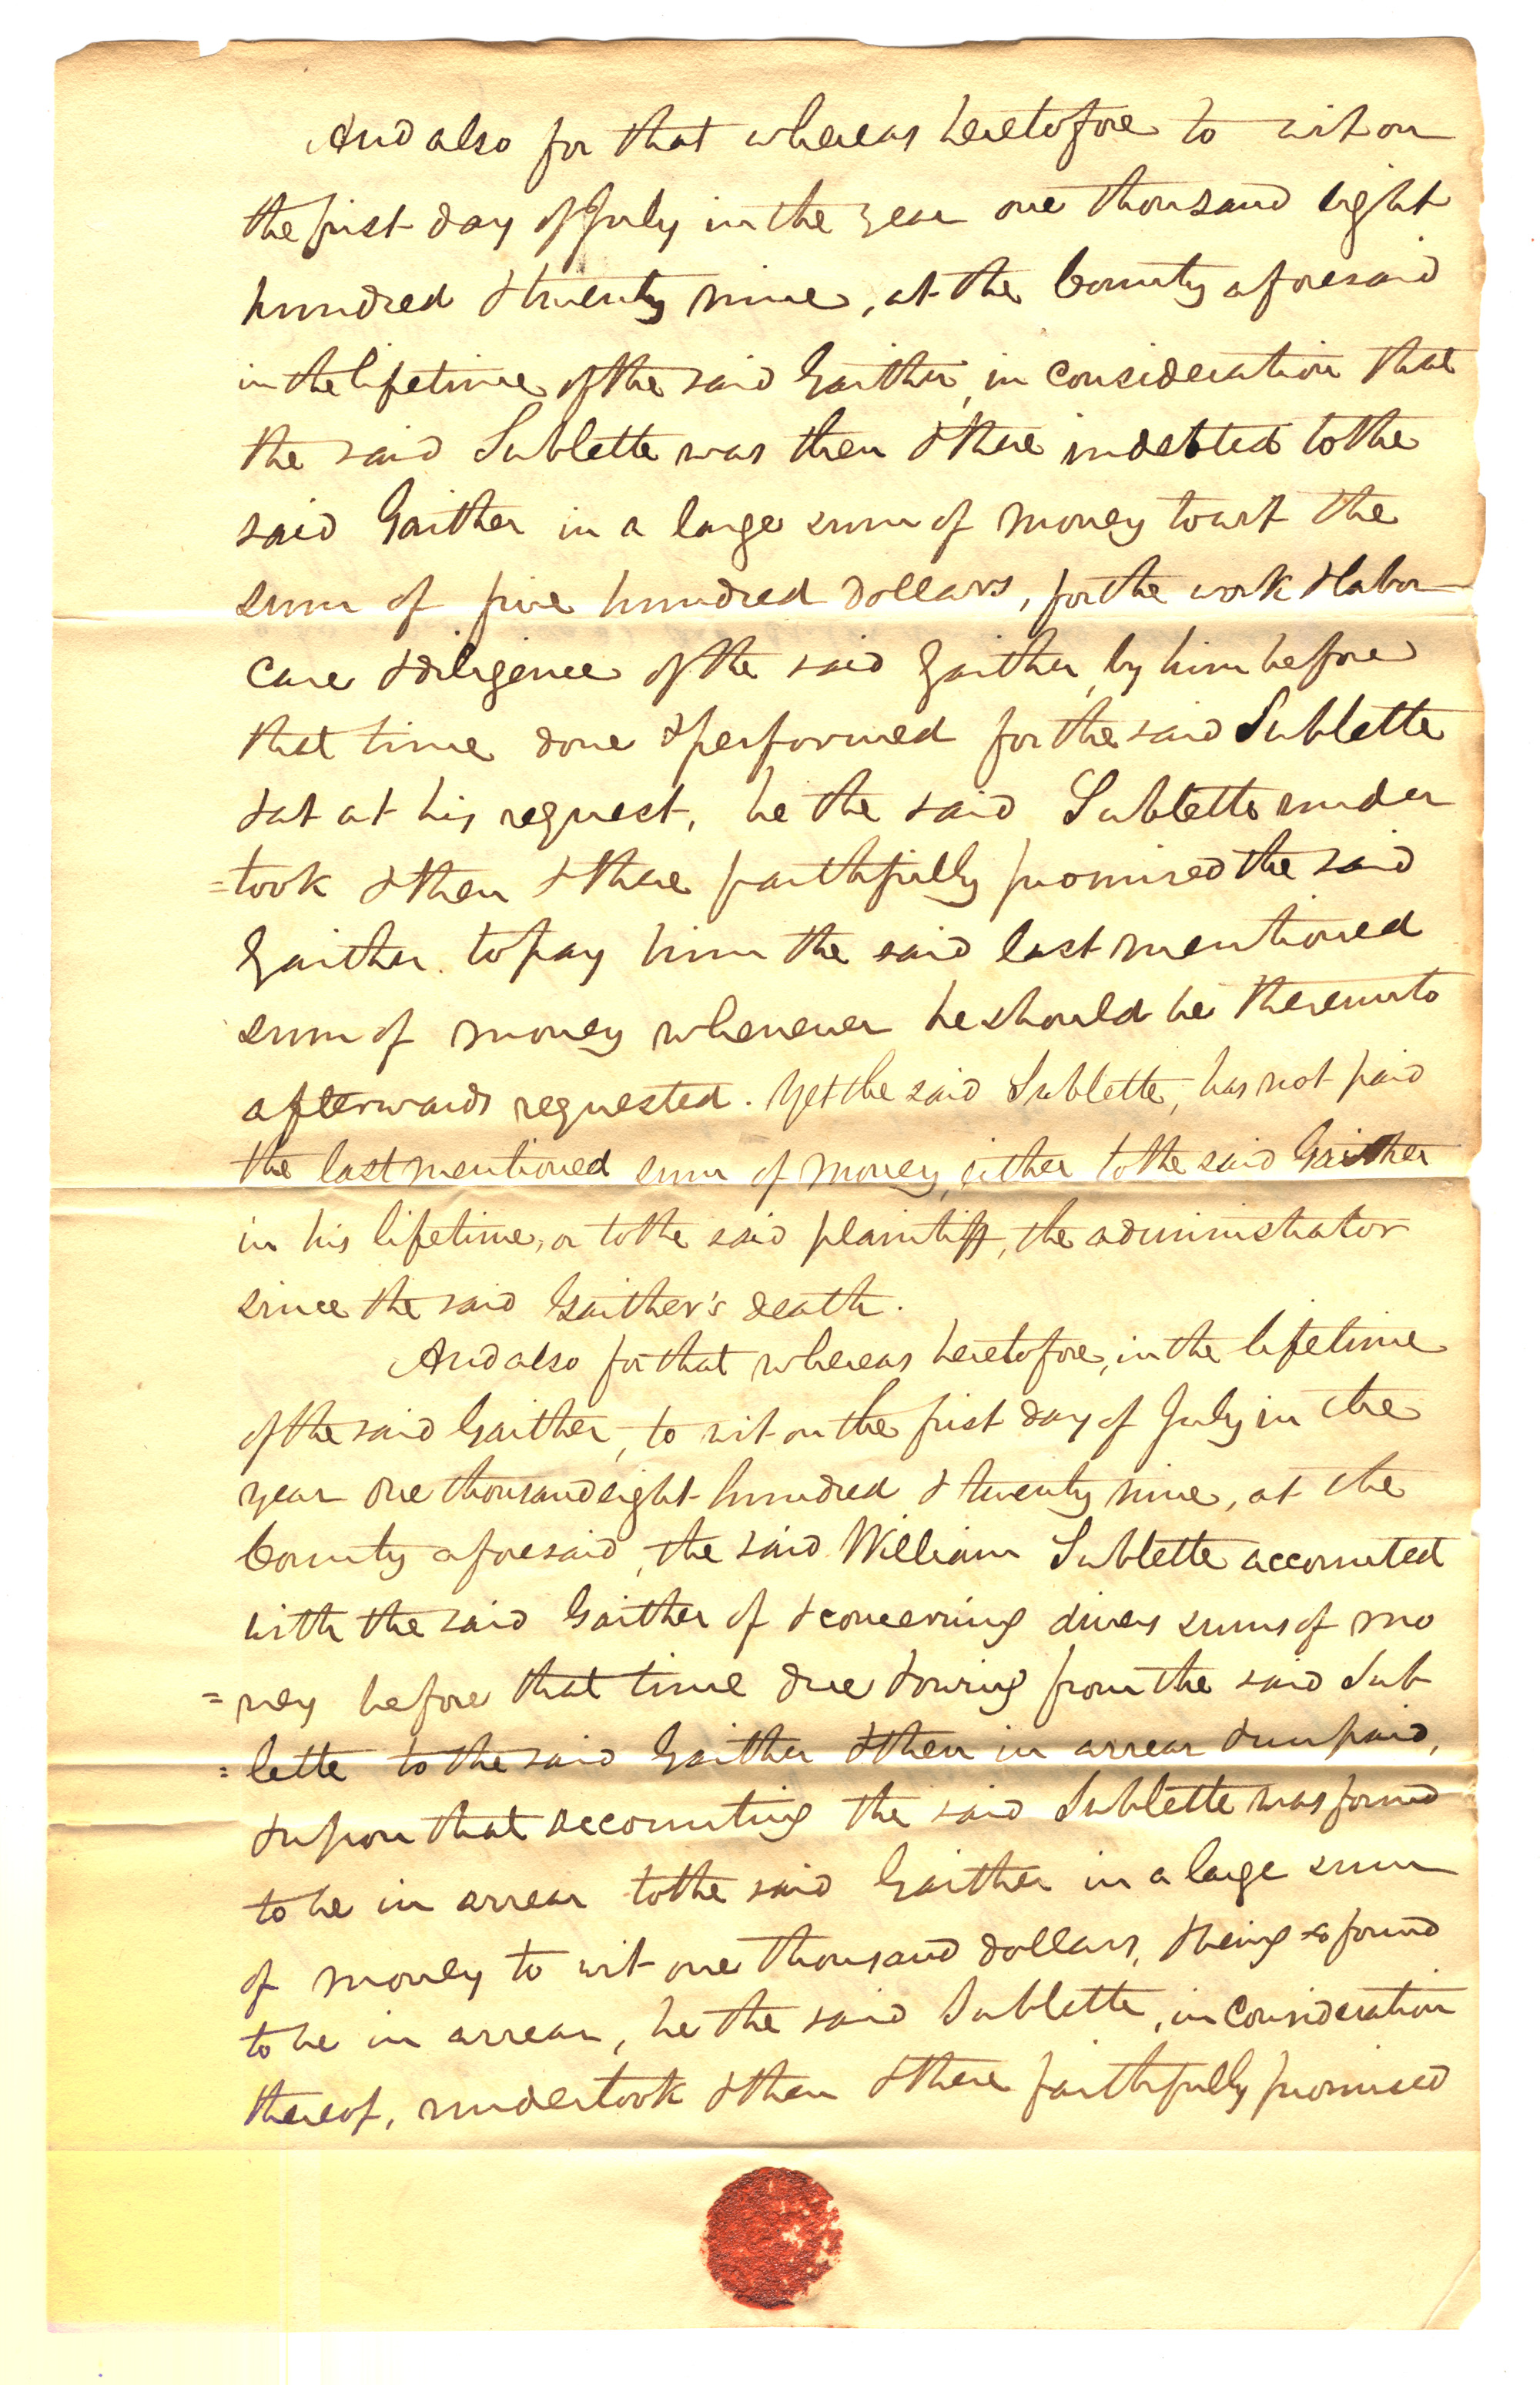 And also for that whereas heretofore to wit on
the first day of July in the year one thousand eight
hundred & twenty nine, at the County aforesaid
in the lifetime of the said Gaither, in consideration that
the said Sublette was then & there indebted to the
said Gaither in a large sum of money to wit the
sum of five hundred dollars, for the work & labor
care & diligence of the said Gaither, by him before
that time done & performed for the said Sublette
& at at his request, he the said Sublette under
=took & then & there faithfully promised the said
Gaither to pay him the said last mentioned
sum of money whenever he should be thereunto
afterwards requested. Yet the said Sublette, has not paid
the last mentioned sum of money, either to the said Gaither
in his lifetime, or to the said plaintiff, the administrator
since the said Gaither's death.
And also for that whereas heretofore, in the lifetime
of the said Gaither, to wit on the first day of July in the
year one thousand eight hundred & twenty nine, at the
County aforesaid, the said William Sublette accounted
with the said Gaither of & concerning divers sums of mo
=ney before that time due & owing from the said Sub
=lette to the said Gaither & then in arrear & unpaid,
& upon that accounting the said Sublette was found
to be in arrear to the said Gaither in a large sum
of money to wit one thousand dollars, & being so found
to be in arrear, he the said Sublette, in consideration
thereof, undertook & then & there faithfully promised